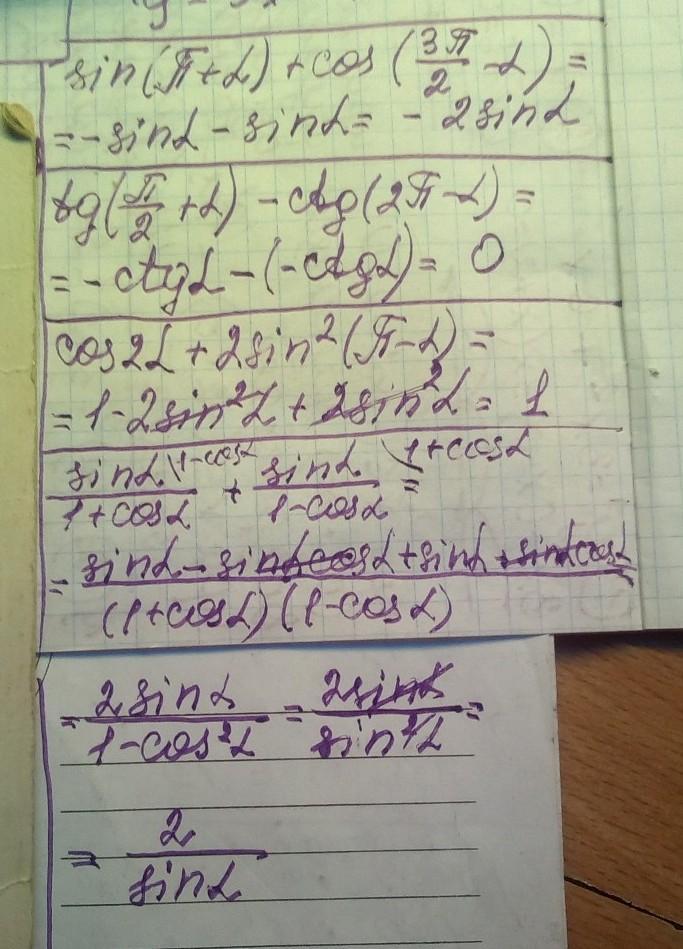 sin(π+α) + cos(3π/2 - α) =
= - sinα - sinα = - 2sinα
tg(π/2 + α) - ctg(2π - α) =
= - ctgα - (-ctgα) = 0
cos2α + 2sin²(π-α) =
= 1 - 2sin²α + 2sin²α = 1
sinα\1-cosα / 1+cosα + sinα\1+cosα / 1-cosα =
= sinα - sinαcosα + sinα + sinαcosα / (1+cosα)(1-cosα)
= 2sinα / 1-cos²α = 2sinα / sin²α =
= 2 / sinα